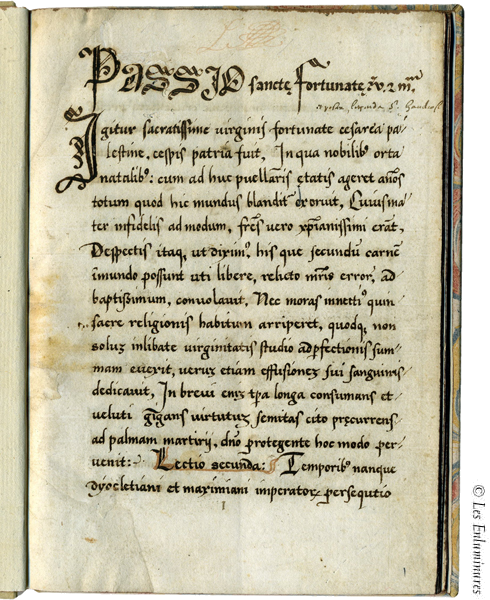 PASSIO sanctę Fortunatę v. 2 m̄
Igitur sacratissime virginis fortunate cesarea pa-
lestine, cespis patria fuit, In qua nobilib; orta
natalib;: cum ad huc puellaris etatis ageret an̄os
totum quod hic mundus blandit exoruit, Cuius ma
ter infidelis ad modum, fr̄es vero xp̄ianissimi erāt,
Despectis itaq, ut diximꝰ, his que secundū carnē
īmundo possunt uti libere, relicto mr̄is error, ad
baptissimum, convolavit, Nec moras innetti quin
sacre religionis habitum arriperet, quodq, non
soluz inlibate virginitatis studio ad perfectionis sum-
mam euerit, veruz etiam effusionez sui sanguinis
dedicavit, In brevi eniz tp̄a longa consumans et
veluti gigans virtutuz semitas cito pręcurrens
ad palmam martirij, dn̄o protegente hoc modo per-
venit: Lectio secunda: Temporib; nanque
dyocletiani et maximiani imperatorꝝ persequtio
1
© Les Enluminures